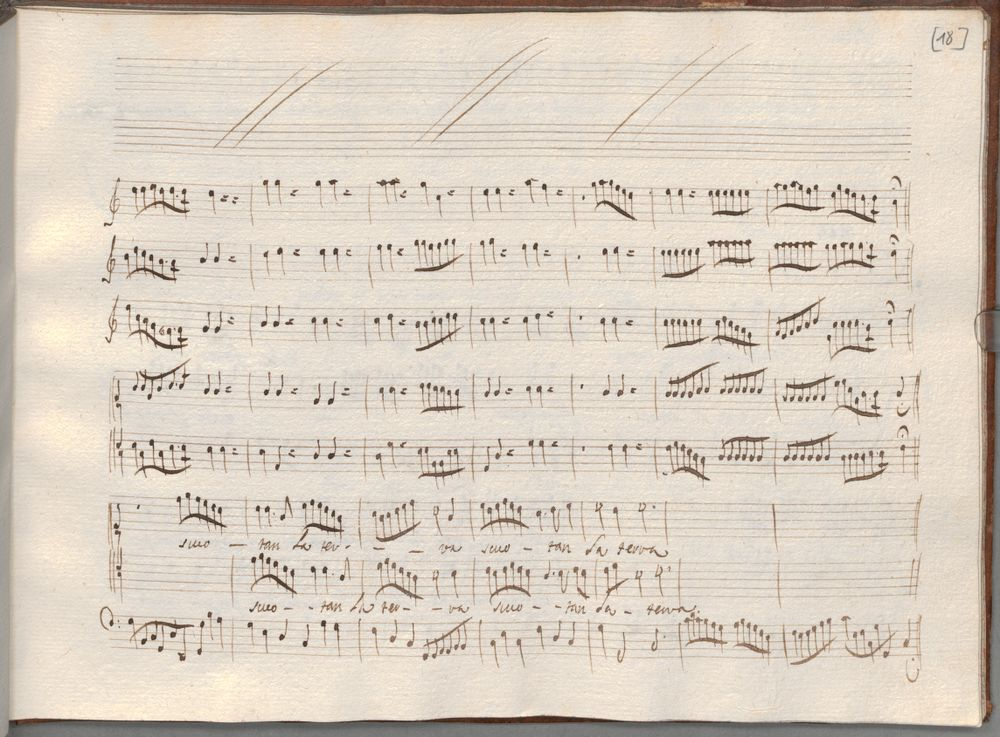 [18]
scuo - tan la ter - - - va scuo - tan la terra
scuo - - tan la ter - - va scuo - - tan la - terra.